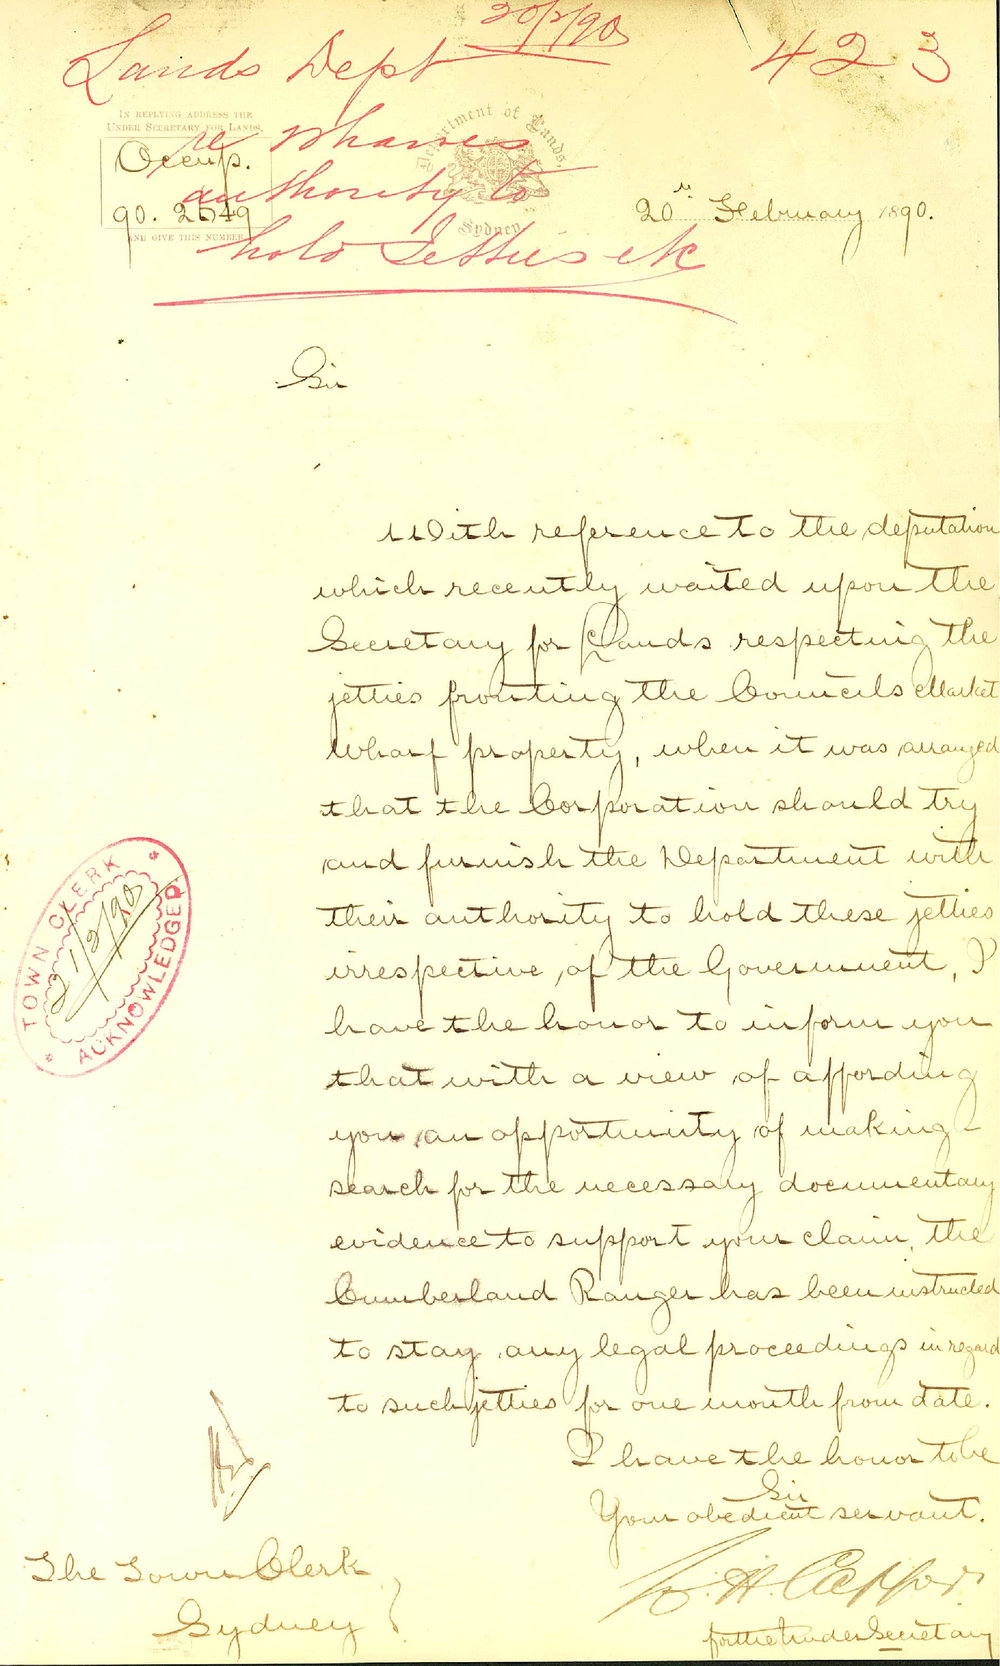 20/2/90
Lands Dept 423
IN REPLYING ADDRESS THE
UNDER SECRETARY FOR LANDS,
re Wharves
Occup.
authority to
90. 2549
AND GIVE THIS NUMBER
hold Jetties etc
Department of Lands,
Sydney
20th February 1890.
Sir
With reference to the deputation
which recently waited upon the
Secretary for Lands respecting the
jetties fronting the Councils Market
Wharf property, when it was arranged
that the Corporation should try
and furnish the Department with
their authority to hold these jetties
irrespective of the Government, I
have the honor to inform you
that with a view of affording
you an opportunity of making
search for the necessary documentary
evidence to support your claim, the
Cumberland Ranger has been instructed
to stay any legal proceedings in regard
to such jetties for one month from date.
I have the honor to be
Sir
Your obedient servant.
for the Under Secretary
TOWN CLERK
21/2/90
ACKNOWLEDGED
The Town Clerk
Sydney